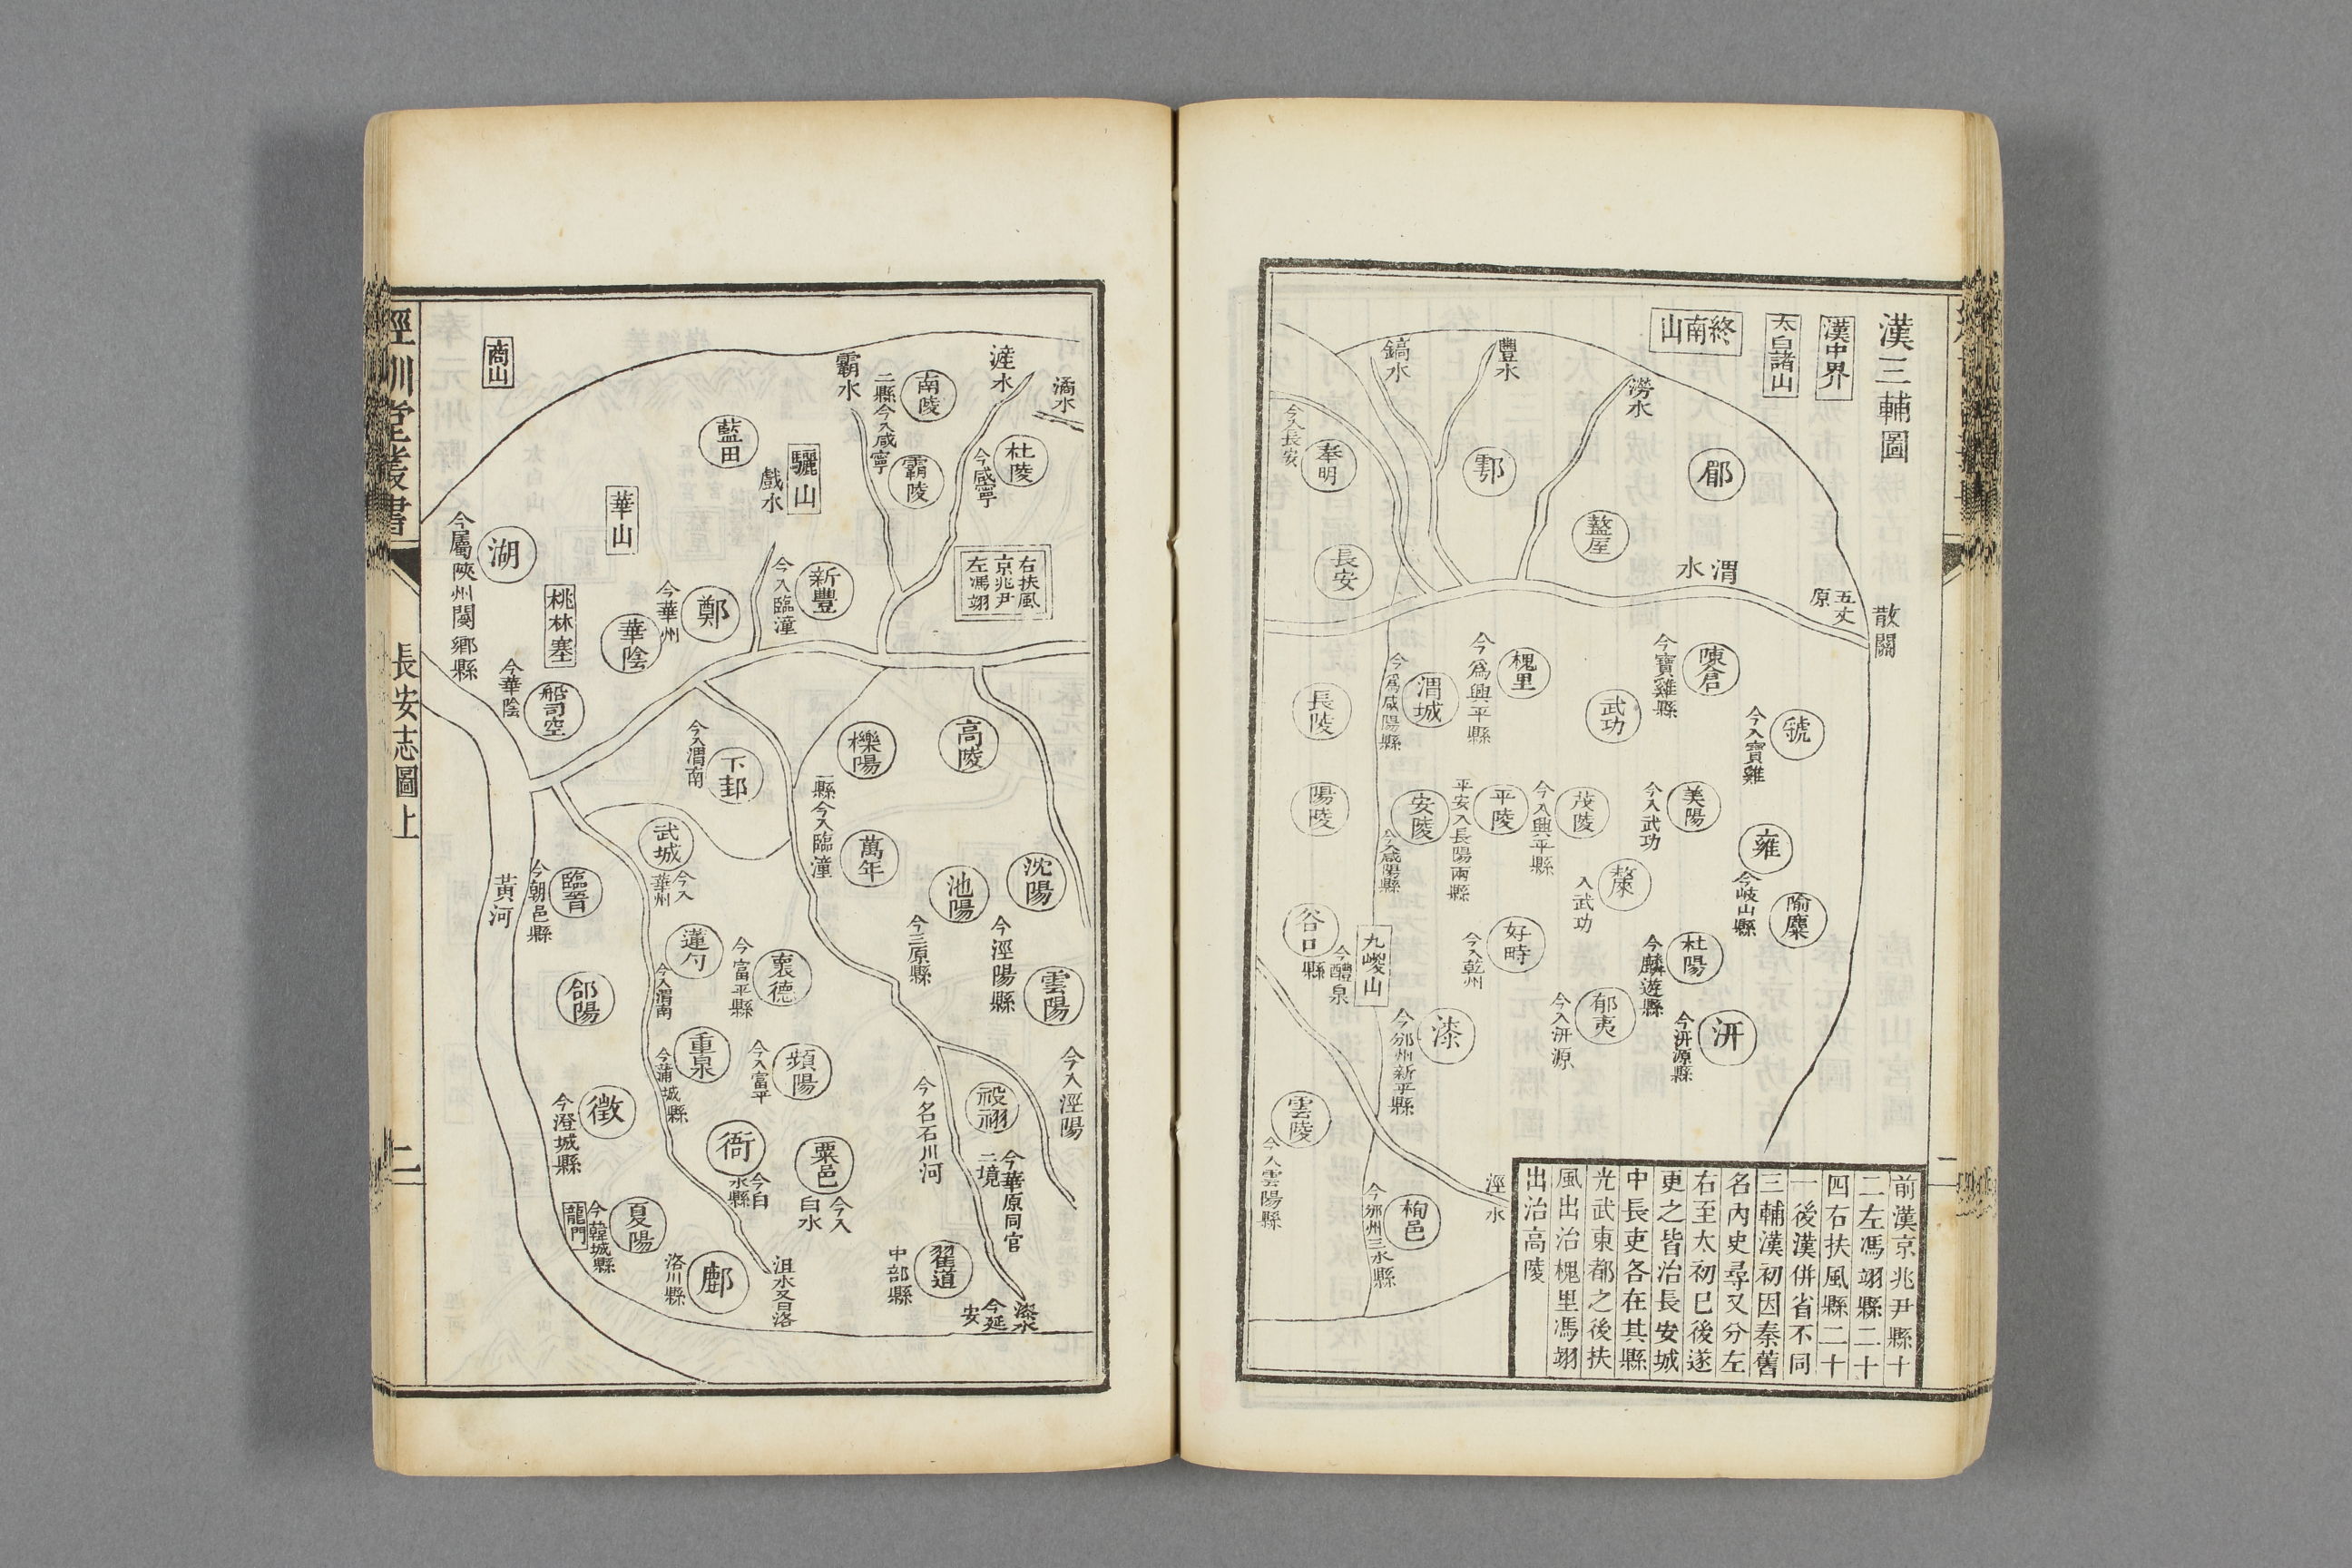 漢三輔圖
漢中界
太白諸山
終南山
散關
五丈
原
渭水
郿
盩厔
澇水
鄠
豐水
鎬水
今入長安
奉明
長安
陳倉
今寶雞縣
虢
今入寶雞
武功
槐里
今爲興平縣
渭城
今爲咸陽縣
長陵
美陽
今入武功
雍
今岐山縣
隃麋
茂陵
今入興平縣
平陵
平安入長陽兩縣
安陵
今入咸陽縣
陽陵
斄
入武功
杜陽
今麟遊縣
汧
今汧源縣
郁夷
今入汧源
好畤
今入乾州
九嵕山
谷口
今醴泉
縣
漆
今邠州新平縣
雲陵
今入雲陽縣
栒邑
今邠州三水縣
涇水
前漢京兆尹縣十
二左馮翊縣二十
四右扶風縣二十
一後漢併省不同
三輔漢初因秦舊
名內史尋又分左
右至太初已後遂
更之皆治長安城
中長吏各在其縣
光武東都之後扶
風出治槐里馮翊
出治高陵
潏水
滻水
杜陵
今咸寧
南陵
霸陵
二縣今入咸寧
霸水
右扶風
京兆尹
左馮翊
藍田
驪山
戲水
新豐
今入臨潼
商山
華山
鄭
今華州
華陰
桃林塞
湖
今屬陝州閿鄉縣
船司空
今華陰
高陵
櫟陽
萬年
縣今入臨潼
下邽
今入渭南
沈陽
池陽
今三原縣
今涇陽縣
雲陽
今入涇陽
武城
今入
華州
臨晉
今朝邑縣
黃河
蓮勺
今入渭南
褱德
今富平縣
郃陽
重泉
今蒲城縣
頻陽
今入富平
祋祤
今華原同官
二境
今名石川河
徵
今澄城縣
衙
今白
水縣
粟邑
今入
白水
夏陽
今韓城縣
龍門
鄜
洛川縣
沮水又曰洛
翟道
中部縣
漆水
今延
安
經訓堂叢書
長安志圖上
二